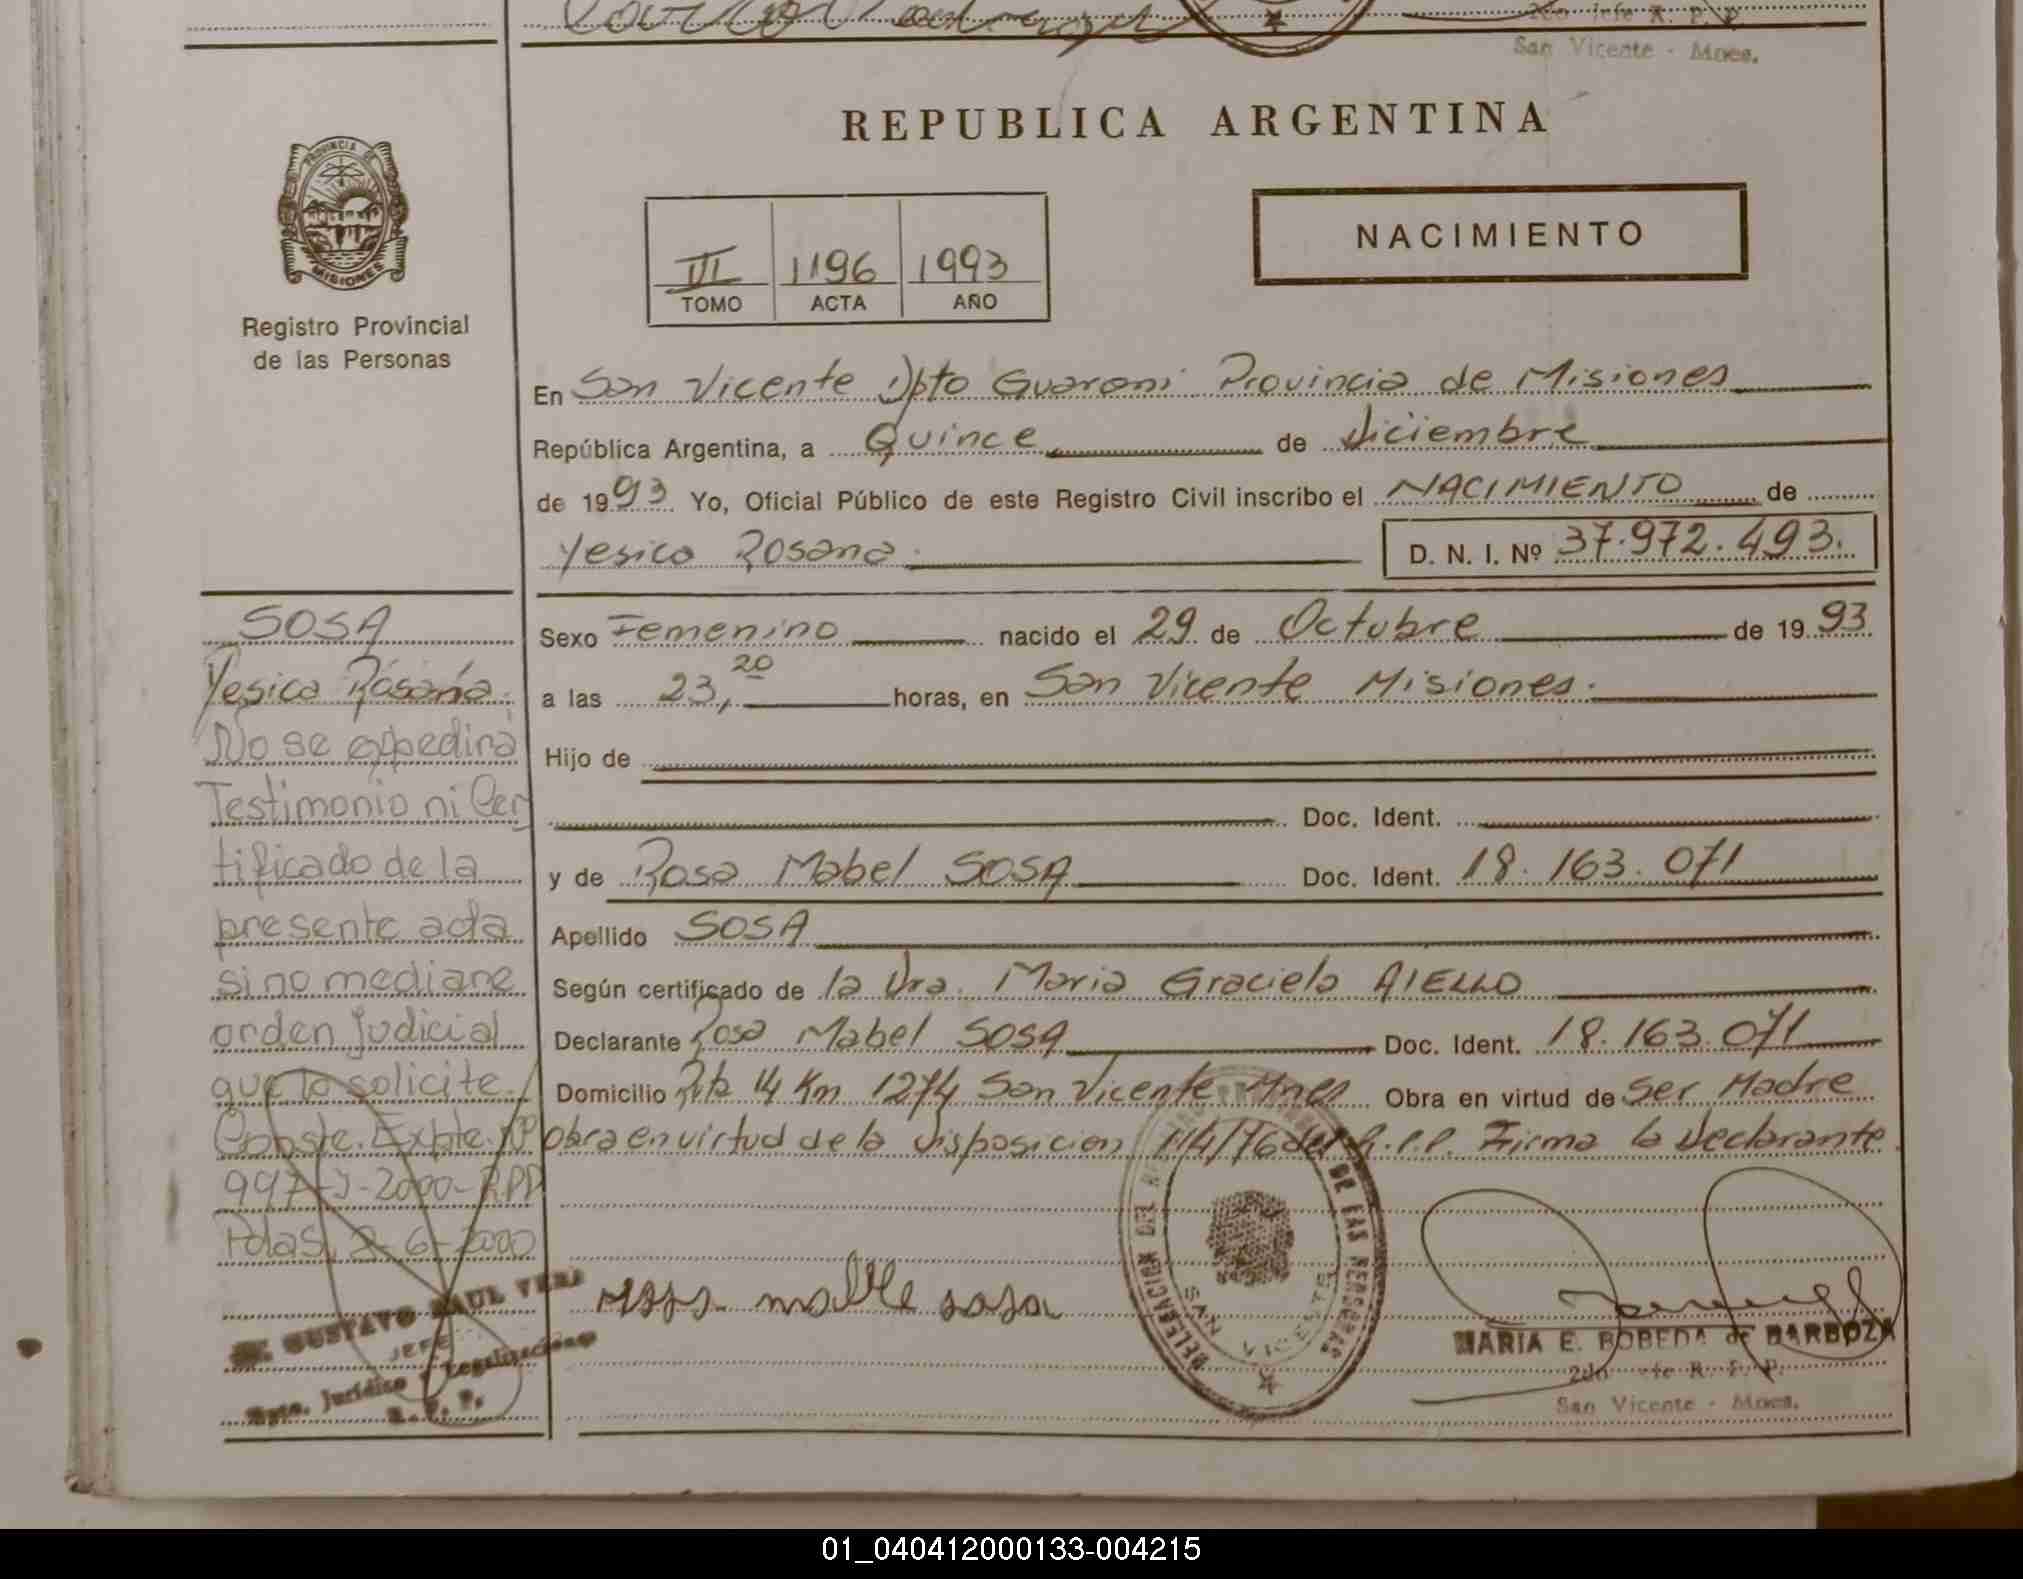 San Vicente - Mnes.
REPUBLICA ARGENTINA
PROVINCIA DE
MISIONES
Registro Provincial
de las Personas
VI 1196 1993
TOMO ACTA AÑO
NACIMIENTO
En San Vicente Dpto Guarani Provincia de Misiones
República Argentina, a Quince de diciembre
de 1993 Yo, Oficial Público de este Registro Civil inscribo el NACIMIENTO de
Yesica Rosana. D. N. I. Nº 37.972.493.
Sexo Femenino nacido el 29 de Octubre de 1993
a las 23,20 horas, en San Vicente Misiones.
Hijo de
Doc. Ident.
y de Rosa Mabel SOSA Doc. Ident. 18.163.071
Apellido SOSA
Según certificado de la Dra. Maria Graciela AIELLO
Declarante Rosa Mabel SOSA Doc. Ident. 18.163.071
Domicilio Rta 14 Km 1274 San Vicente Mnes Obra en virtud de Ser Madre
obra en virtud de la disposicion 114/76 del R.P.P. Firma la Declarante.
SOSA
Yesica Rosana.
No se expedirá
Testimonio ni Cer
tificado de la
presente acta
sino mediane
orden judicial
que lo solicite.
Conste. Expte. Nº
997-J-2000-RPP
Pdas, 2-6-2000
GUSTAVO RAUL VERA
JEFE
Dpto. Jurídico y Legalizaciones
R. P. P.
DELEGACION DEL DE LAS PERSONAS
SAN VICENTE
MARIA E. BOBEDA de BARBOZA
2do Jefe R. P. P.
San Vicente - Mnes.
01_040412000133-004215